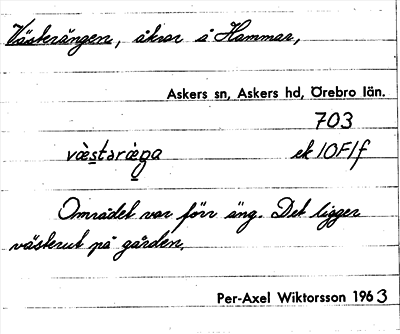 Västerängen, åkrar å Hammar,
Askers sn, Askers hd, Örebro län.
703
væ̀stəræŋa ek 10F1f
Området var förr äng. Det ligger
västerut på gården.
Per-Axel Wiktorsson 1963